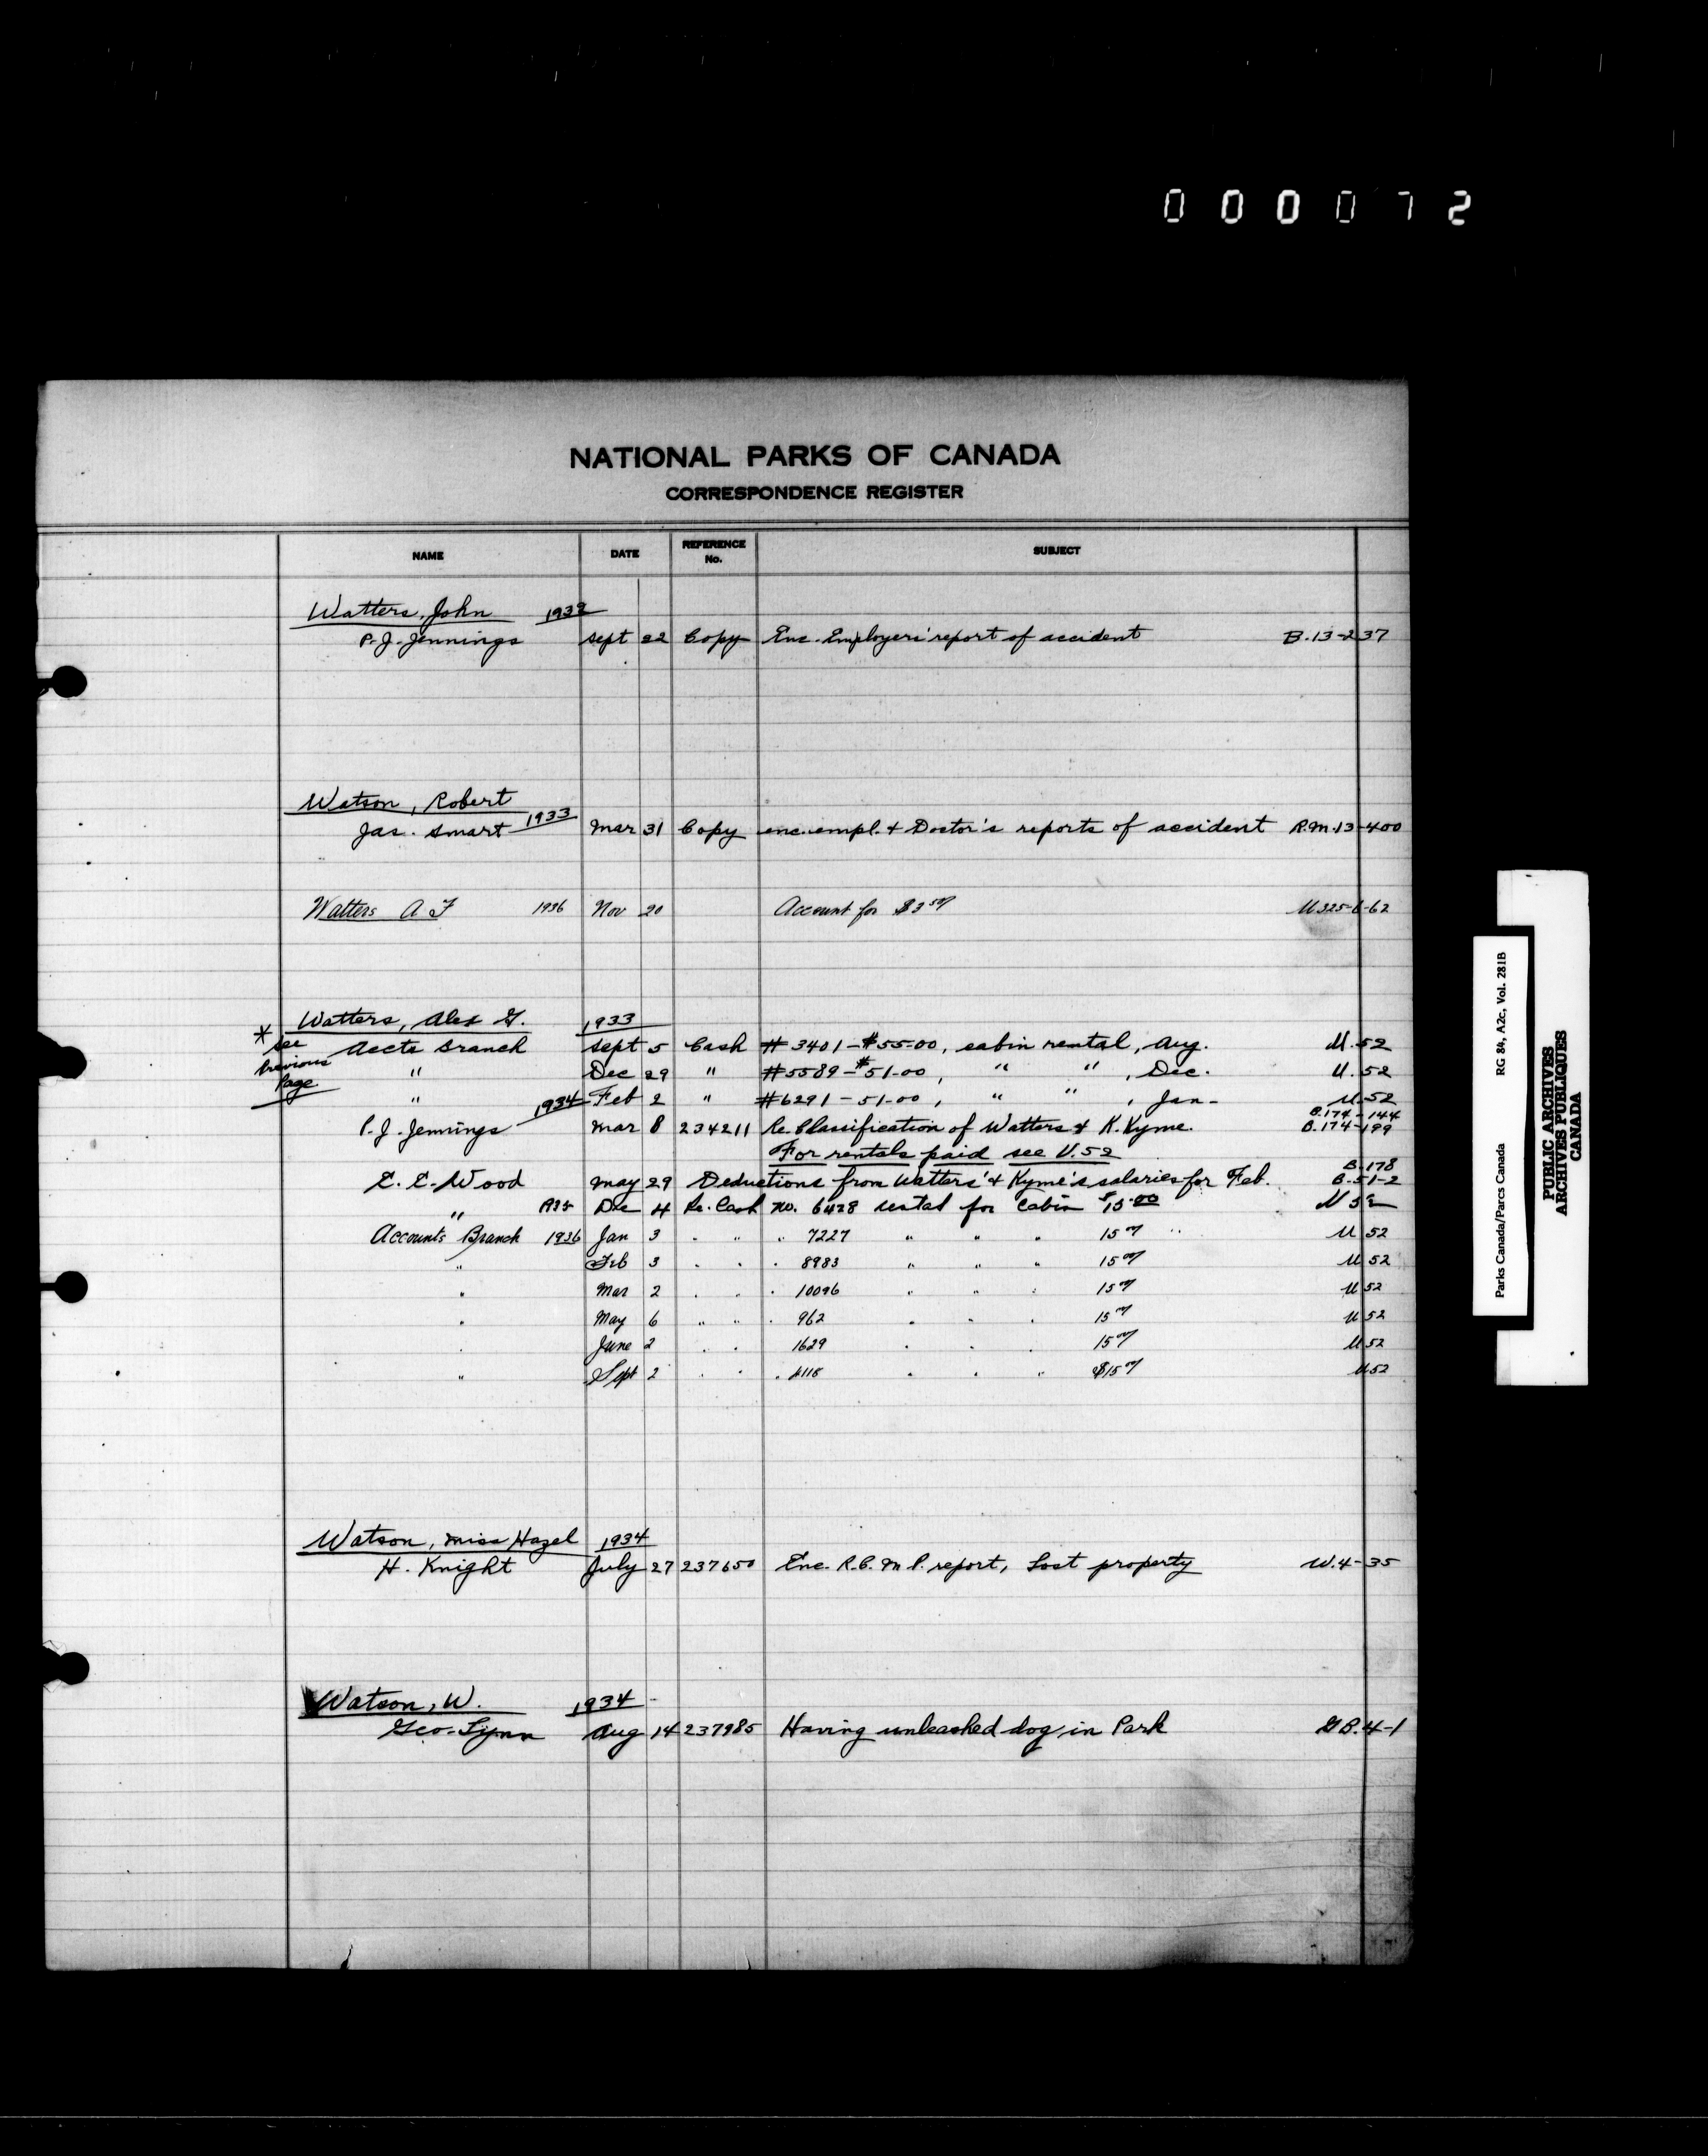 000072
NATIONAL PARKS OF CANADA
CORRESPONDENCE REGISTER
NAME DATE REFERENCE No. SUBJECT
Watters, John 1932
P. J. Jennings Sept 22 Copy Enc. Employers' report of accident B.13-237
Watson, Robert
Jas. Smart 1933 Mar 31 Copy enc. empl. & Doctor's reports of accident R.M.13-400
Watters A F 1936 Nov 20 Account for $3.00 U325-6-62
Watters, Alex G. 1933
* see previous page
Accts Branch Sept 5 Cash # 3401 - $55.00, cabin rental, Aug. U.52
" Dec 29 " #5589 - $51.00, " " , Dec. U.52
" 1934 Feb 2 " #6291 - 51.00, " " , Jan. U.52
P. J. Jennings Mar 8 234211 Re Classification of Watters & K. Kyme. B.174-144 B.174-199
For rentals paid see U.52
E. E. Wood May 29 Deductions from Watters' & Kyme's salaries for Feb. B.178 B.51-2
" 1935 Dec 4 Re. Cash no. 6428 rental for cabin $15.00 U 52
Accounts Branch 1936 Jan 3 " " " 7227 " " " 15 00 " U 52
" Feb 3 " " " 8983 " " " 15 00 U 52
" Mar 2 " " " 10096 " " " 15 00 U 52
" May 6 " " " 962 " " " 15 00 U 52
" June 2 " " 1629 " " " 15 00 U 52
" Sept 2 " " " 4115 " " " $15 00 U 52
Watson, Miss Hazel 1934
H. Knight July 27 237650 Enc. R.C.M.P. report, Lost property W.4-35
Watson, W. 1934
Geo. Lynn Aug 14 237985 Having unleashed dog in Park G B.4-1
Parks Canada/Parcs Canada RG 84, A2c, Vol. 281B
PUBLIC ARCHIVES
ARCHIVES PUBLIQUES
CANADA